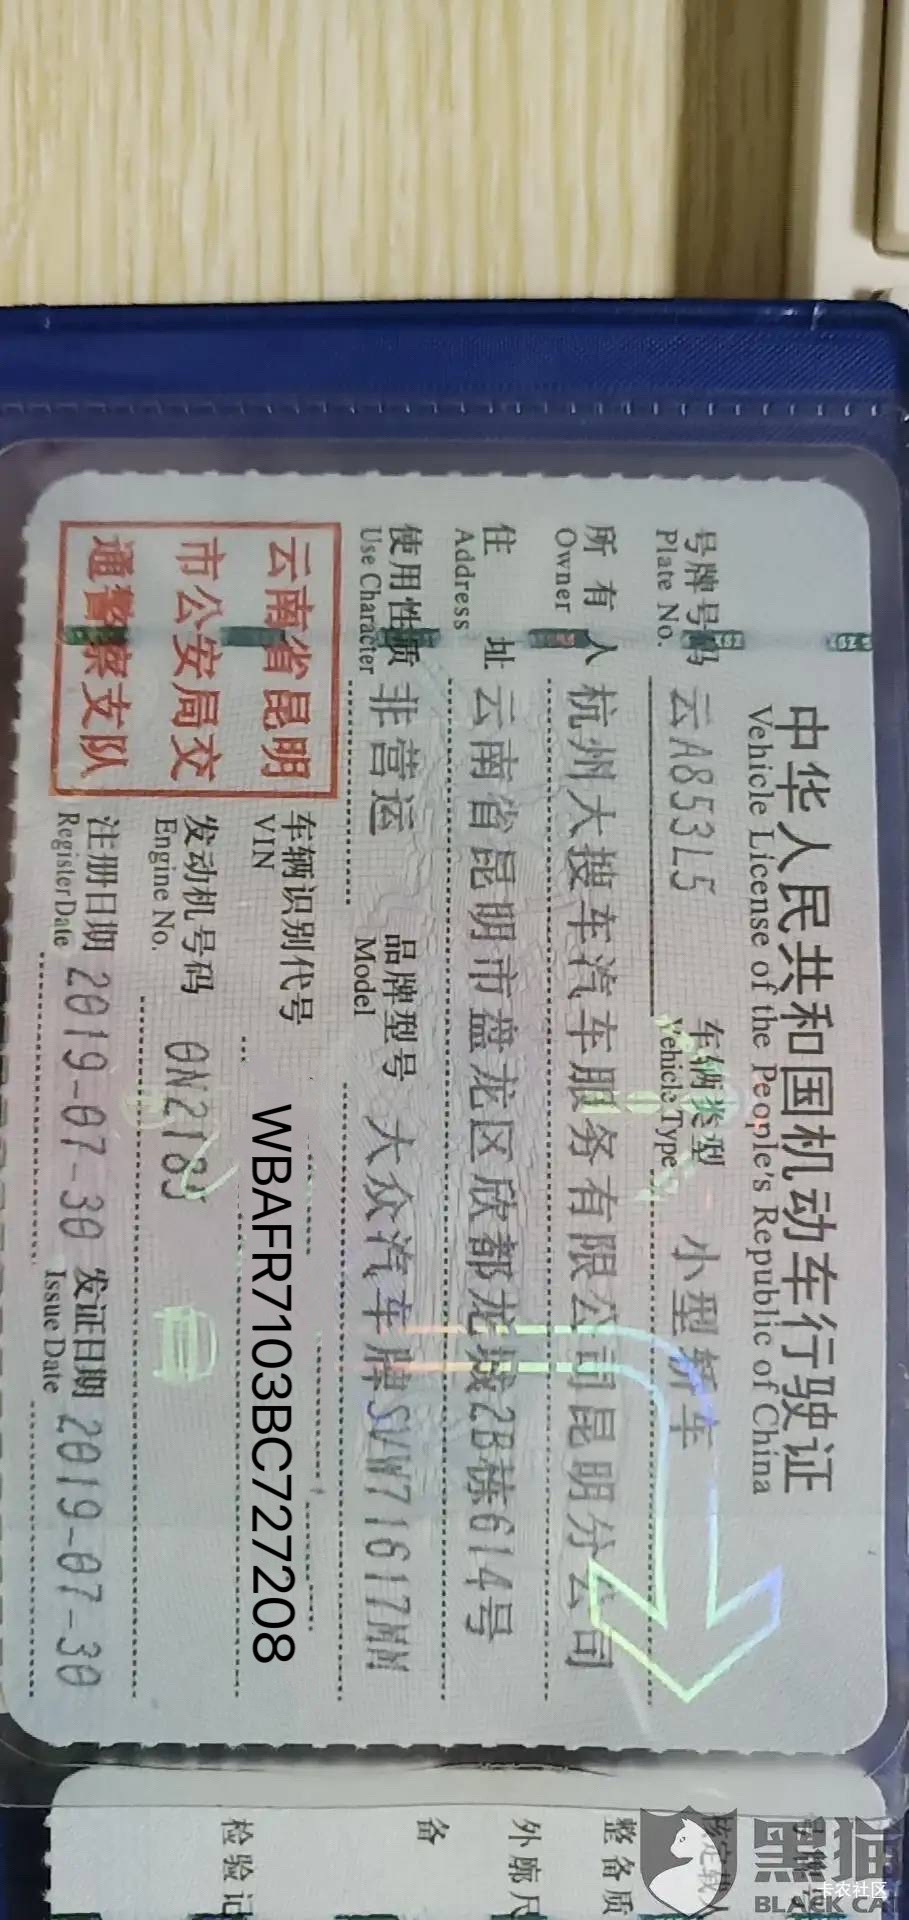 中华人民共和国机动车行驶证
Vehicle License of the People's Republic of China
号牌号码 云A853L5 车辆类型 小型轿车
Plate No. Vehicle Type
所有人 杭州大搜车汽车服务有限公司昆明分公司
Owner
住址 云南省昆明市盘龙区欣都龙城2B栋614号
Address
使用性质 非营运 品牌型号 大众汽车牌SVW71617MM
Use Character Model
云南省昆明
市公安局交
通警察支队
车辆识别代号 WBAFR7103BC727208
VIN
发动机号码
Engine No.
注册日期 2019-07-30 发证日期 2019-07-30
Register Date Issue Date
整备质
外廓尺
备
检验记
黑猫
BLACK CA
卡农社区